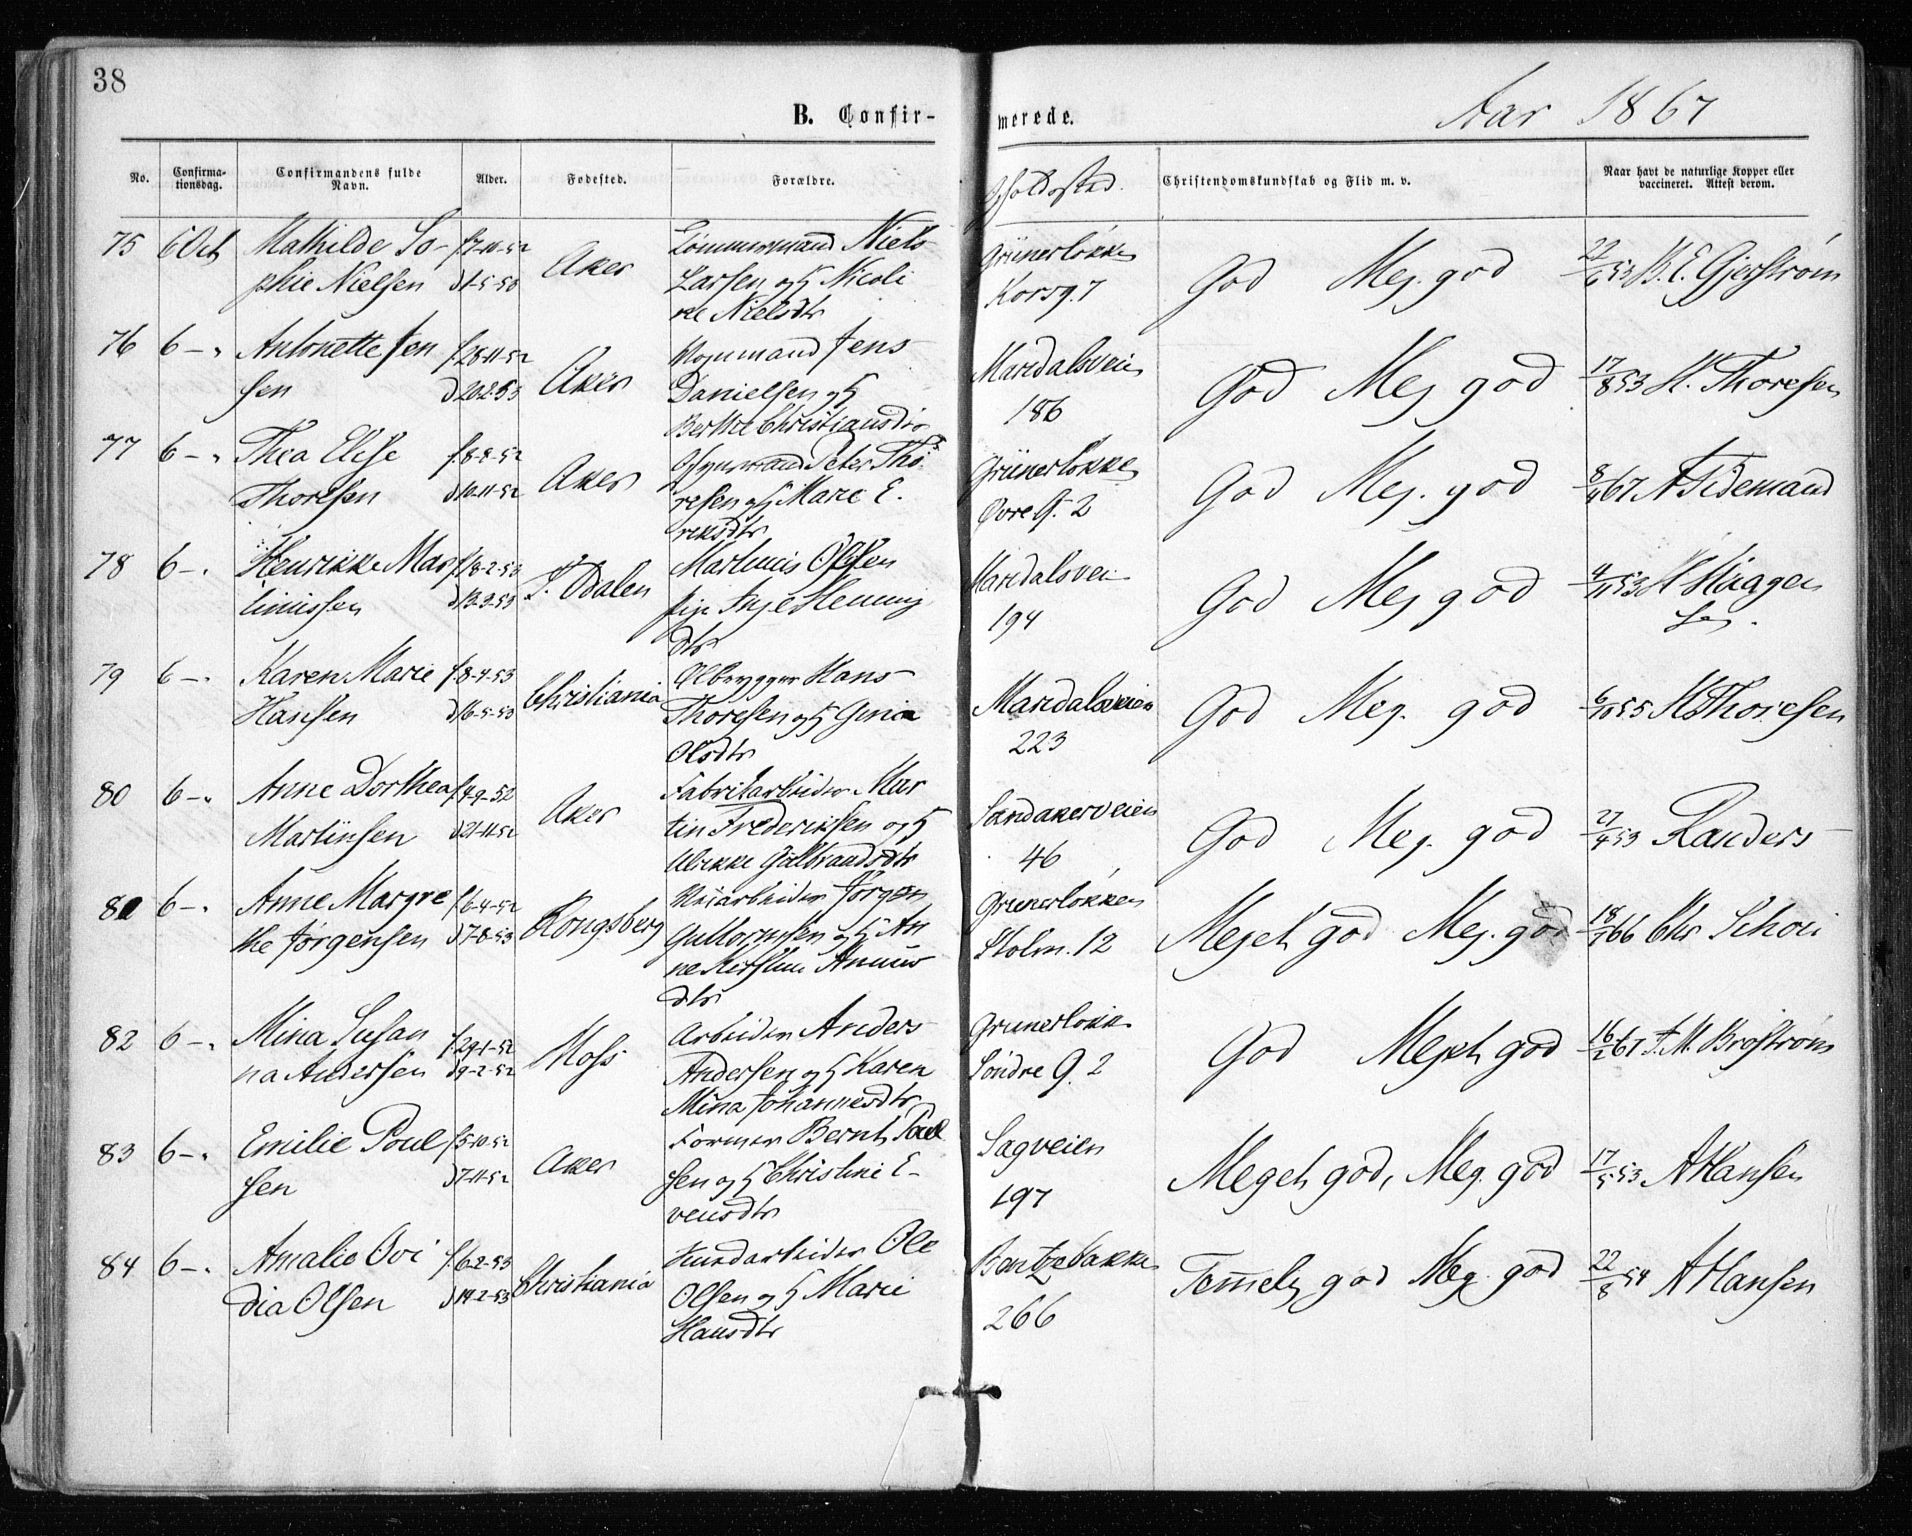 38
B. Confirmerede.
Aar 1867
No.
Confirmationsdag.
Confirmandens fulde Navn.
Alder.
Fødested.
Forældre.
Opholdssted.
Christendomskundskab og Flid m. v.
Naar havt de naturlige Kopper eller vaccineret. Attest derom.
75 6 Oct Mathilde So- f 7-10-52 Tømmermand Niels Grünerløkken
phie Nielsen d 1-5-53 Aker Larsen og H Nicoli Korsg. 7 God Meg. god 22/6 53 B. E. Gjerstrøm
ne Nielsdtr
76 6 – " Antonette Jen f. 28-11-52 Vognmand Jens Maridalsveien
sen d 20-2-53 Aker Danielsen og H 186 God Meg god 17/8 53 H. Thoresen
Berthe Christiansdtr
77 6 – " Thea Elise f. 8-8-52 Peter Tho Grünerløkken
Thoresen d 10-11-52 Aker resen og H Marie E. Øvre G. 2 God Meg. god 8/4 67 A Tidemand
riksdtr
78 6 – " Henrikke Mar f 18-2-53 Martinus Olsen Maridalsvei
tinussen d 13-3-53 S. Odalen Pige Inge Henning 194 God Meg god 4/11 53
dtr
79 6 – " Karen Marie f. 8-4-53 Ølbrygger Hans Maridalsveien
Hansen d 16-5-53 Christiania Thoresen og H Gunia 223 God Meg. god 6/10 55 H Thoresen
Olsdtr
80 6 – " Anne Dorthea f 4-9-52 Fabrikarbeider Mar Sandakerveien
Martinsen d 21-11-52 Aker tin Frederiksen og H 46 God Meg. god 27/4 53 Randers
Ulrikke Gulbrandsdtr
81 6 – " Anne Margre f 6-4-52 Jørgen Grunerløkken
the Jørgensen d 7-8-53 Kongsberg Guttormsen og H An Stolm. 12 Meget god Meg. god 18/1 66 Chr Schou
ne Kirstine
dtr
82 6 – " Mina Susan f. 29-1-52 Arbeider Anders Grunerløkk
na Andersen d 9-2-52 Moss Andersen og H Karen Søndre G. 2 God Meget god 16/2 67 F. M. Brostrøm
Mina Johannesdtr
83 6 – " Emilie Poul f 5-10-52 Former Bernt Poul Sagveien
sen d 7-11-52 Aker sen og H Christine E- 197 Meget god, Meg. god 17/5 53 A Hansen
vensdtr
84 6 – " Amalie Ovi f. 6-2-53 Ole Bentzebakke
dia Olsen d 14-2-53 Christiania Olsen og H Marie 266 Temmelig god Meg. god 22/8 54 A Hansen
Hansdtr